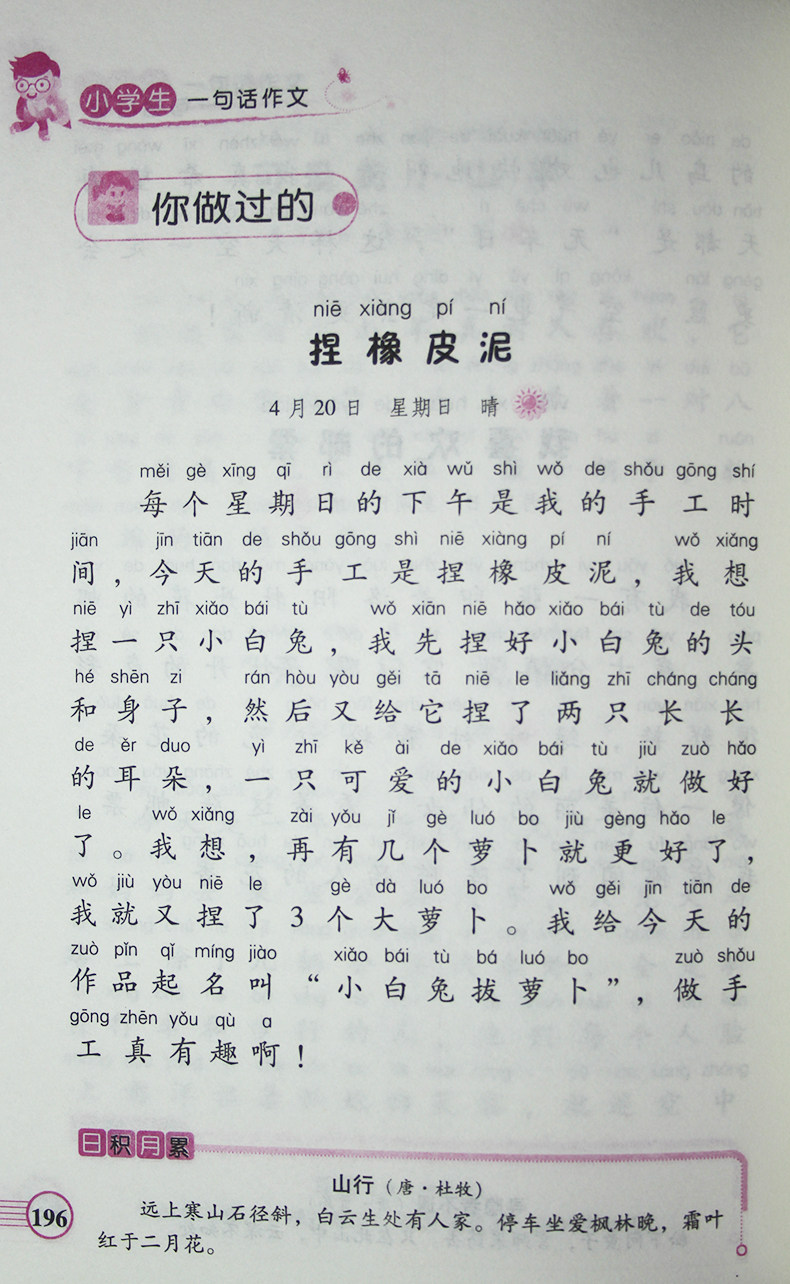 小学生 一句话作文
你做过的
niē xiàng pí ní
捏橡皮泥
4月20日 星期日 晴
měi gè xīng qī rì de xià wǔ shì wǒ de shǒu gōng shí
每个星期日的下午是我的手工时
jiān jīn tiān de shǒu gōng shì niē xiàng pí ní wǒ xiǎng
间，今天的手工是捏橡皮泥，我想
niē yì zhī xiǎo bái tù wǒ xiān niē hǎo xiǎo bái tù de tóu
捏一只小白兔，我先捏好小白兔的头
hé shēn zi rán hòu yòu gěi tā niē le liǎng zhī cháng cháng
和身子，然后又给它捏了两只长长
de ěr duo yì zhī kě ài de xiǎo bái tù jiù zuò hǎo
的耳朵，一只可爱的小白兔就做好
le wǒ xiǎng zài yǒu jǐ gè luó bo jiù gèng hǎo le
了。我想，再有几个萝卜就更好了，
wǒ jiù yòu niē le gè dà luó bo wǒ gěi jīn tiān de
我就又捏了3个大萝卜。我给今天的
zuò pǐn qǐ míng jiào xiǎo bái tù bá luó bo zuò shǒu
作品起名叫“小白兔拔萝卜”，做手
gōng zhēn yǒu qù a
工真有趣啊！
日积月累
山行（唐·杜牧）
远上寒山石径斜，白云生处有人家。停车坐爱枫林晚，霜叶
红于二月花。
196